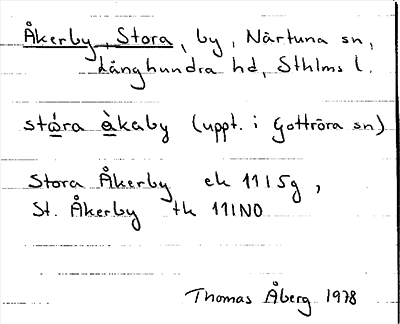 Åkerby, Stora, by, Närtuna sn,
Långhundra hd, Sthlms l.
stώ̲ra à̲kaby (uppt. i Gottröra sn)
Stora Åkerby ek 11I5g,
St. Åkerby tk 11INO
Thomas Åberg 1978